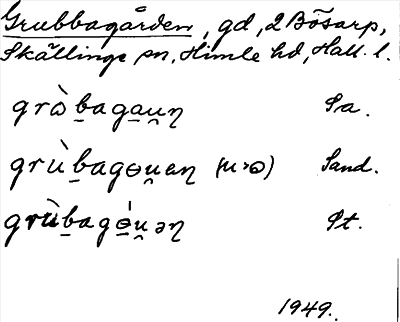 Grubbagården, gd, 2 Bösarp,
Skällinge sn, Himle hd, Hall. l.
grɷ̀b̲aga̲u̯ꞃ Sa.
grùb̲agɵu̯aꞃ (u>ɷ) Sand.
grùb̲agɵ̲́u̯əꞃ St.
1949.